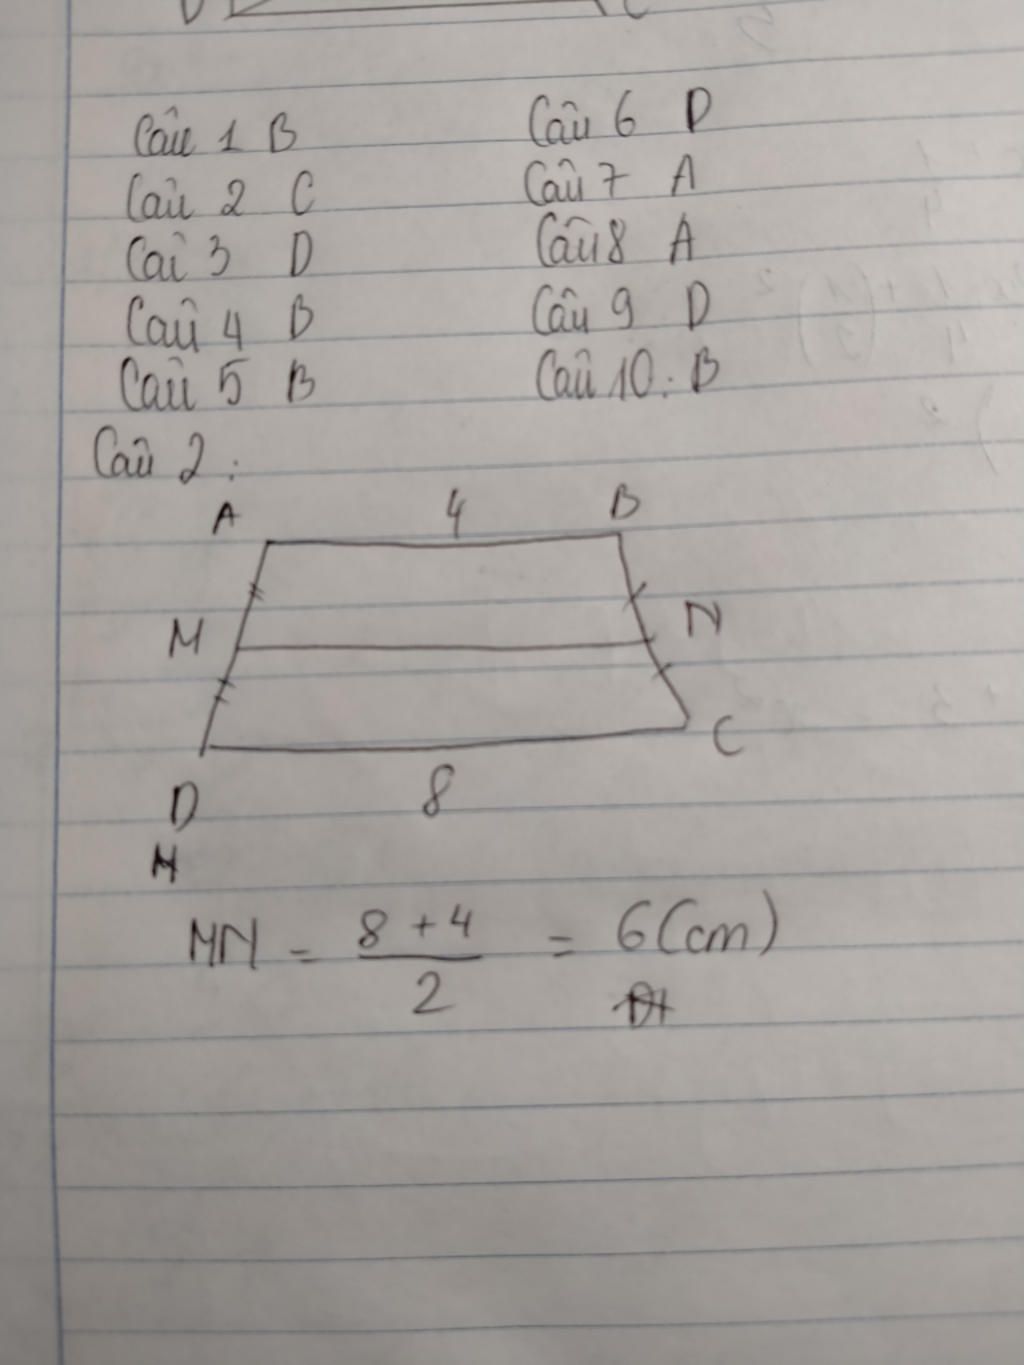 Câu 1 B
Câu 2 C
Câu 3 D
Câu 4 B
Câu 5 B
Câu 6 D
Câu 7 A
Câu 8 A
Câu 9 D
Câu 10: B
Câu 2:
A 4 B
M N
D 8 C
M
MN = 8 + 4 / 2 = 6 (cm)